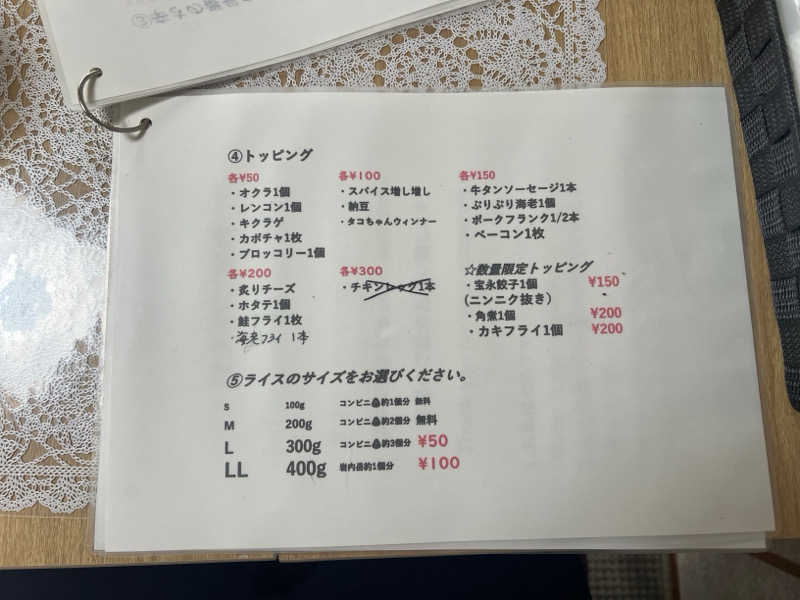 ④トッピング
各¥50
・オクラ1個
・レンコン1個
・キクラゲ
・カボチャ1枚
・ブロッコリー1個
各¥100
・スパイス増し増し
・納豆
・タコちゃんウィンナー
各¥150
・牛タンソーセージ1本
・ぷりぷり海老1個
・ポークフランク1/2本
・ベーコン1枚
各¥200
・炙りチーズ
・ホタテ1個
・鮭フライ1枚
・海老フライ 1本
各¥300
・チキンレッグ1本
☆数量限定トッピング
・宝永餃子1個 ¥150
(ニンニク抜き)
・角煮1個 ¥200
・カキフライ1個 ¥200
⑤ライスのサイズをお選びください。
S 100g コンビニ🍙約1個分 無料
M 200g コンビニ🍙約2個分 無料
L 300g コンビニ🍙約3個分 ¥50
LL 400g 岩内岳約1個分 ¥100